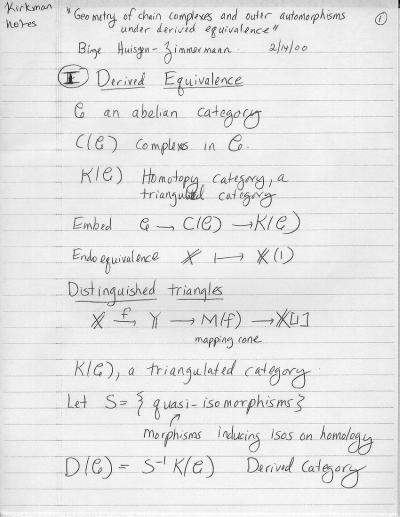 Kirkman
Notes
"Geometry of chain complexes and outer automorphisms
under derived equivalence"
①
Birge Huisgen-Zimmermann 2/14/00
Ⅰ Derived Equivalence
𝒞 an abelian category
C(𝒞) Complexes in 𝒞.
K(𝒞) Homotopy category, a
triangulated category
Embed 𝒞 → C(𝒞) → K(𝒞)
Endoequivalence 𝕏 ↦ 𝕏(1)
Distinguished triangles
𝕏 →f 𝕐 → M(f) → 𝕏[1]
mapping cone
K(𝒞), a triangulated category.
Let S = { quasi-isomorphisms}
morphisms inducing isos on homology
D(𝒞) = S⁻¹ K(𝒞) Derived Category